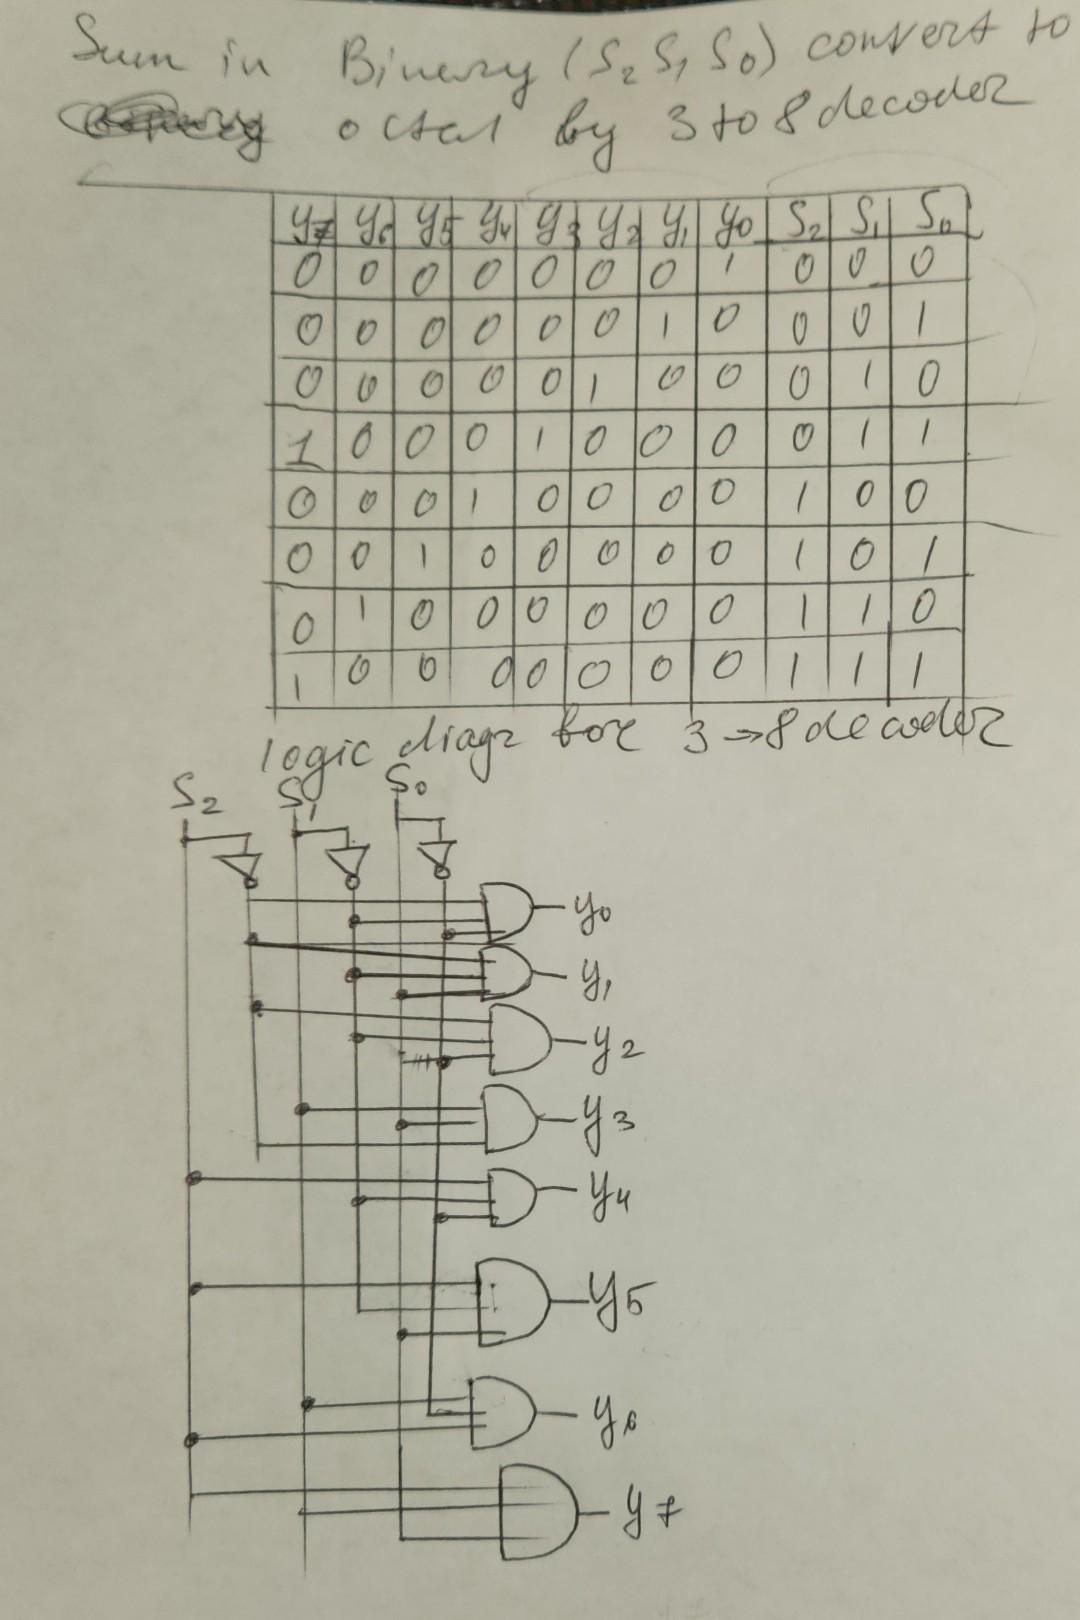 Sum in Binary (S2 S1 S0) convert to
octal by 3 to 8 decoder
y7 y6 y5 y4 y3 y2 y1 y0 S2 S1 S0
0 0 0 0 0 0 0 1 0 0 0
0 0 0 0 0 0 1 0 0 0 1
0 0 0 0 0 1 0 0 0 1 0
1 0 0 0 1 0 0 0 0 1 1
0 0 0 1 0 0 0 0 1 0 0
0 0 1 0 0 0 0 0 1 0 1
0 1 0 0 0 0 0 0 1 1 0
1 0 0 0 0 0 0 0 1 1 1
logic diagr for 3→8 decoder
S2 S1 S0
y0
y1
y2
y3
y4
y5
y6
y7